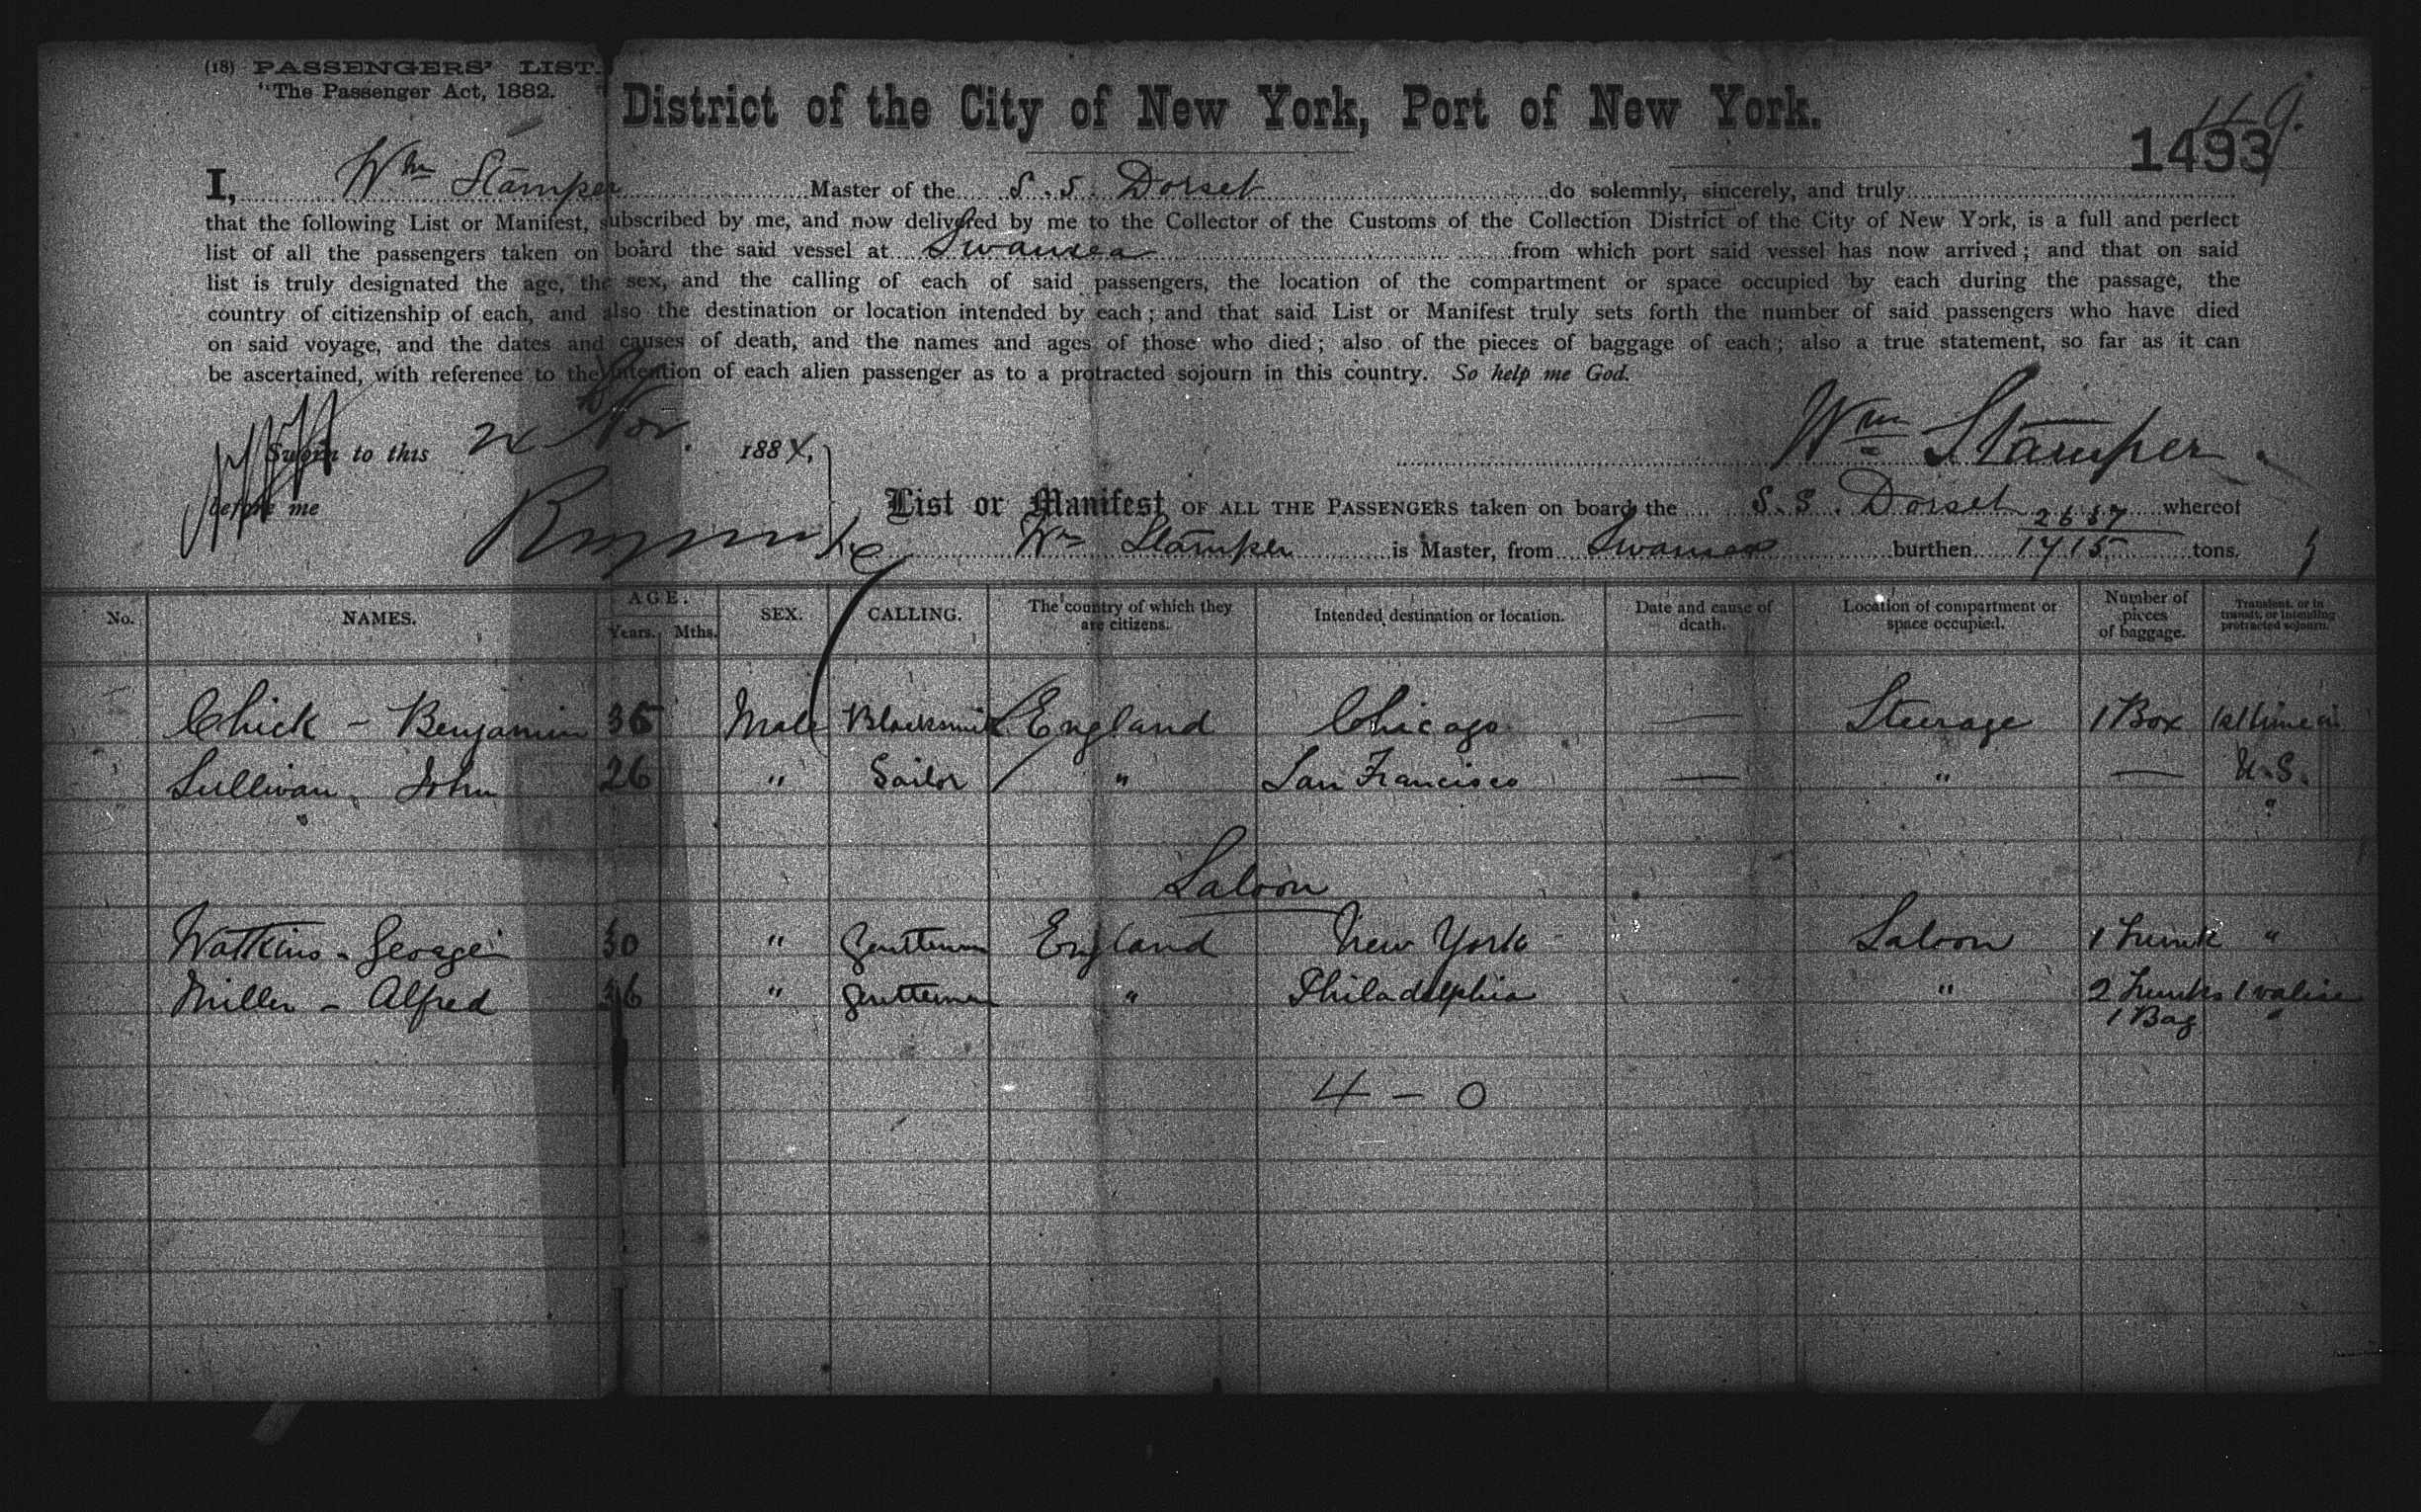 (18) PASSENGERS' LIST.
"The Passenger Act, 1882.
District of the City of New York, Port of New York.
119.
1493
I, Wm Stamper Master of the S.S. Dorset do solemnly, sincerely, and truly
that the following List or Manifest, subscribed by me, and now delivered by me to the Collector of the Customs of the Collection District of the City of New York, is a full and perfect
list of all the passengers taken on board the said vessel at Swansea from which port said vessel has now arrived; and that on said
list is truly designated the age, the sex, and the calling of each of said passengers, the location of the compartment or space occupied by each during the passage, the
country of citizenship of each, and also the destination or location intended by each; and that said List or Manifest truly sets forth the number of said passengers who have died
on said voyage, and the dates and causes of death, and the names and ages of those who died; also of the pieces of baggage of each; also a true statement, so far as it can
be ascertained, with reference to the intention of each alien passenger as to a protracted sojourn in this country. So help me God.
Sworn to this Nov. 1884,
Wm Stamper.
before me
List or Manifest OF ALL THE PASSENGERS taken on board the S.S. Dorset whereof
Wm Stamper is Master, from Swansea burthen 2657 1715 tons.
No. NAMES. AGE. Years. Mths. SEX. CALLING. The country of which they are citizens. Intended destination or location. Date and cause of death. Location of compartment or space occupied. Number of pieces of baggage. Transient, or in transit, or intending protracted sojourn.
Chick - Benjamin 35 Male Blacksmith England Chicago — Steerage 1 Box 1st time in
Sullivan, John 26 " Sailor " San Francisco — " — U.S.
"
Saloon
Watkins - George 30 " Gentleman England New York Saloon 1 Trunk "
Miller - Alfred 36 " Gentleman " Philadelphia " 2 Trunks 1 valise
1 Bag "
4 - 0